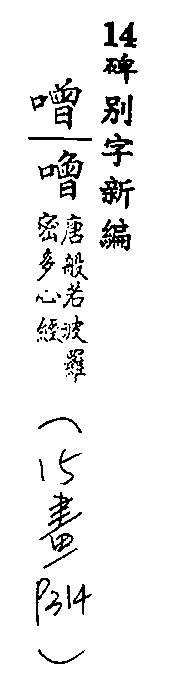 14碑別字新編
噌
噲
唐般若波羅
密多心經
(15畫P314)